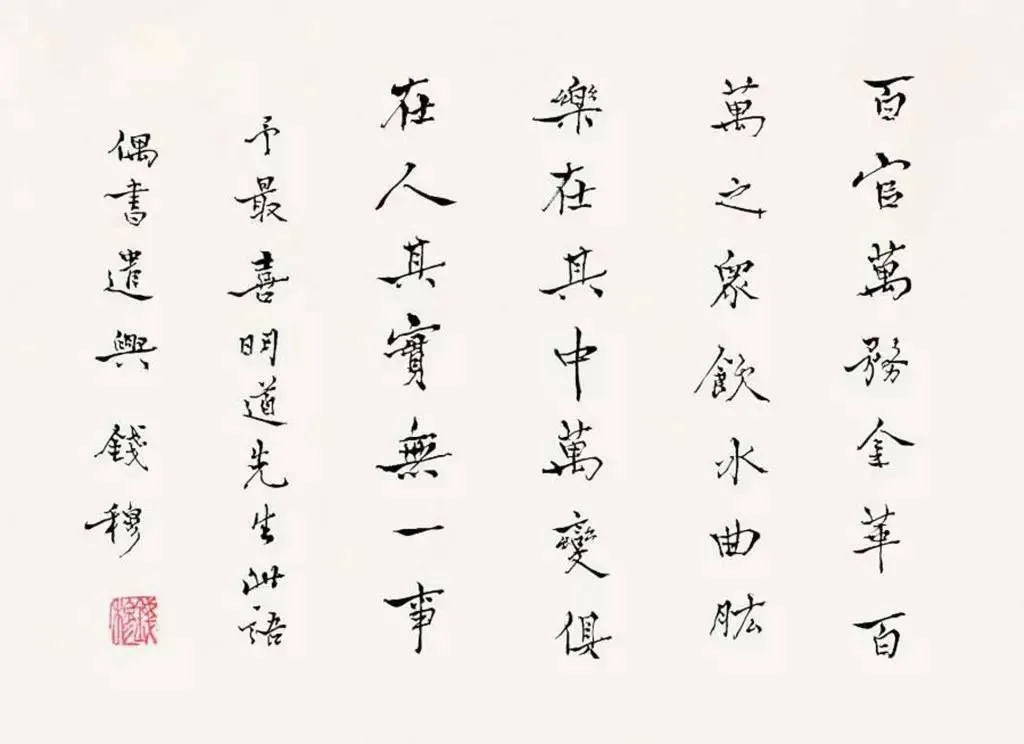 百官萬務金革百
萬之眾飲水曲肱
樂在其中萬變俱
在人其實無一事
予最喜明道先生此語
偶書遣興 錢穆
錢穆